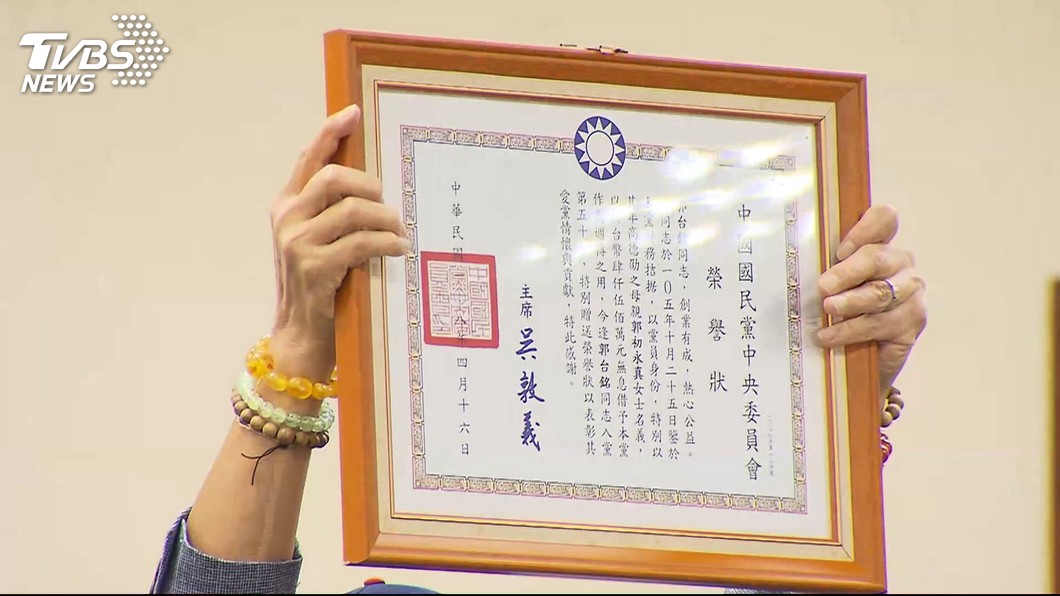 TVBS
NEWS
中國國民黨中央委員會
榮譽狀
台 同志，創業有成，熱心公益。
同志於一０五年十月二十五日鑒於
黨 務拮据，以黨員身份，特別以
年高德劭之母親郭初永真女士名義，
以 台幣肆仟伍佰萬元無息借予本黨
作 週轉之用，今逢郭台銘同志入黨
第五十 ，特別贈送榮譽狀以表彰其
愛黨情懷與貢獻，特此感謝。
主席 吳敦義
中華民國 年四月十六日